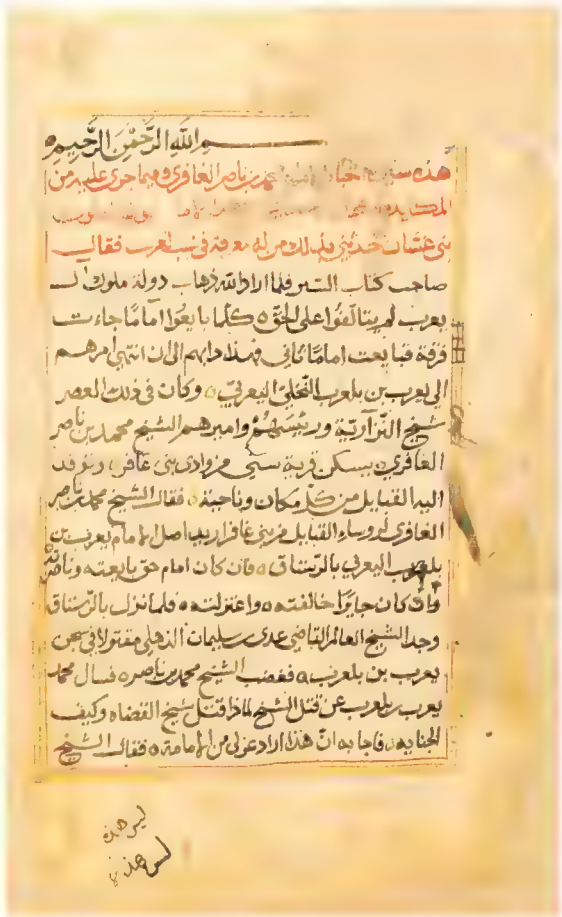 بسم الله الرحمن الرحيم
هذه سيرة اخبار محمد بن ناصر الغافري وفيما جرى عليه من
المكايد
بني غسان حدثني بذلك من له معرفة في نسب العرب فقال
صاحب كتاب السير فلما اراد الله ذهاب دولة ملوك ال
يعرب لم يتالفوا على الحق ه كلما بايعوا اماما جاءت
فرقة فبايعت اماما ثاني فهذا دابهم الى ان انتهى امرهم
الى يعرب بن بلعرب النخلي اليعربي ه وكان في ذلك العصر
شيخ النزارية ورئيسهم واميرهم الشيخ محمد بن ناصر
الغافري ه يسكن قرية سني من وادي بني غافر ه وتوفد
اليه القبايل من كل مكان وناحية ه فقال الشيخ محمد بن ناصر
الغافري لروساء القبايل من بني غافر اريد اصل الامام يعرب بن
بلعرب اليعربي بالرستاق ه فان كان امام حق بايعته وناصرته
وان كان جايرا خالفته ه واعتزلته ه فلما نزل بالرستاق
وجد الشيخ العالم القاضي عدي بن سليمان الذهلي مقتولا في سجن
يعرب بن بلعرب ه فغضب الشيخ محمد بن ناصر ه فسال محمد
يعرب بن بلعرب عن قتل الشيخ لماذا قتل شيخ القضاه وكيف
الجنايه ه فاجابه ان هذا اراد عزلي من الامامة ه فقال الشيخ
ليس هذه
ليس هذه